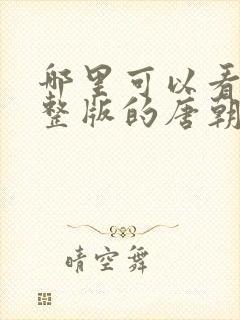 哪里可以看
整版的唐朝
晴空舞